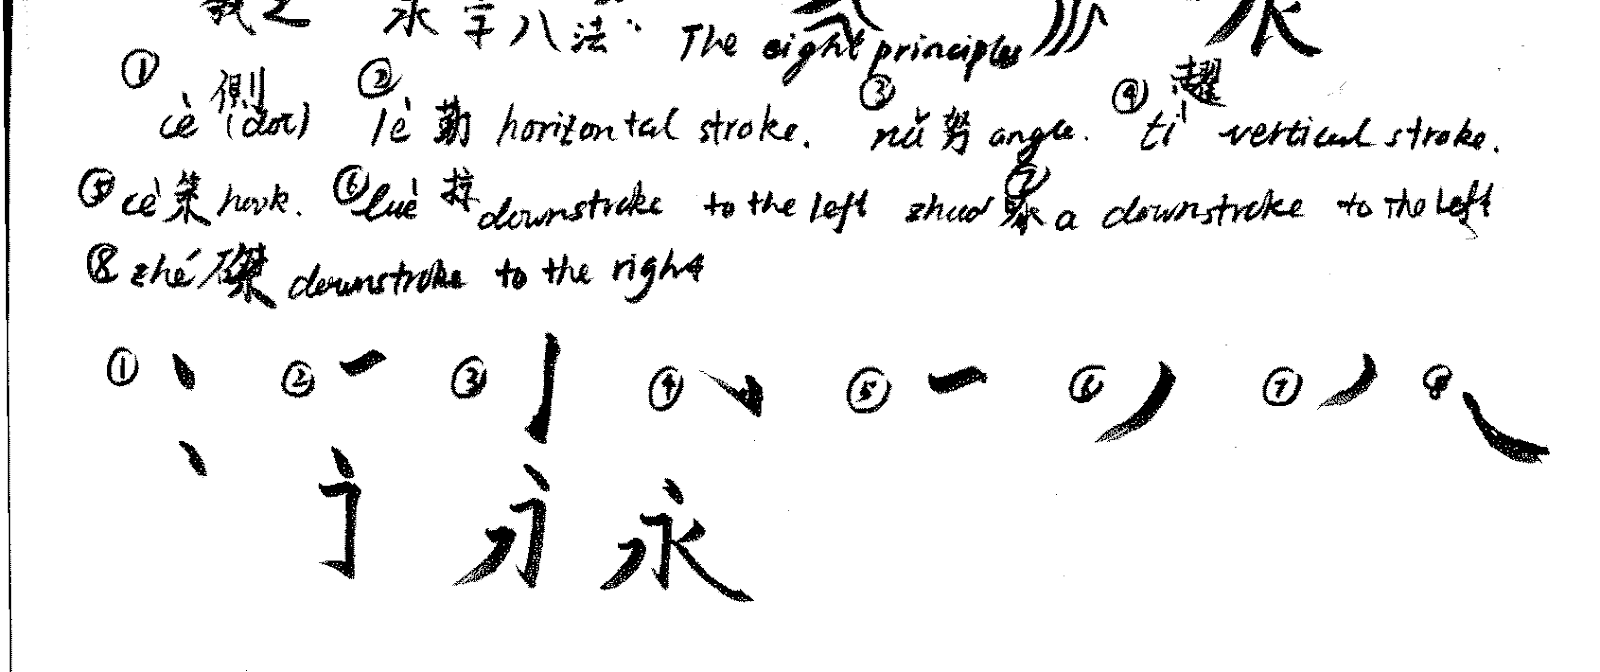 永字八法: The eight principles
① cè 側 (dot) ② lè 勒 horizontal stroke. ③ nǔ 努 angle. ④ tì 趯 vertical stroke.
⑤ cè 策 hook. ⑥ luè 掠 downstroke to the left ⑦ zhuó 啄 a downstroke to the left
⑧ zhé 磔 downstroke to the right
① ② ③ ④ ⑤ ⑥ ⑦ ⑧
永